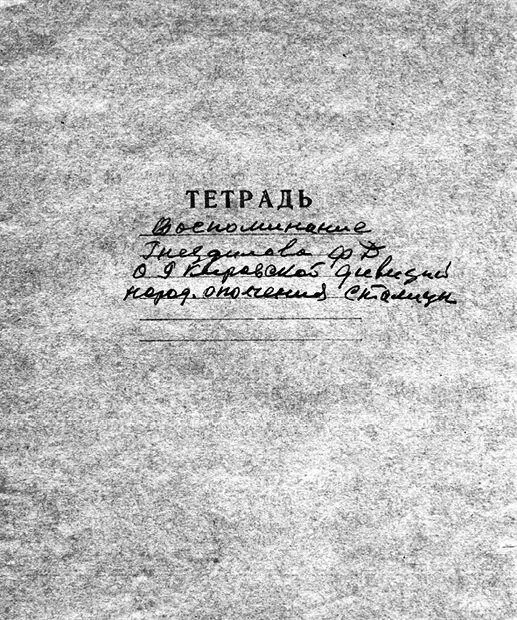 ТЕТРАДЬ
Воспоминание
Гнездилова Ф Д
О 9 Кировской дивизий
народ. ополчения столицы